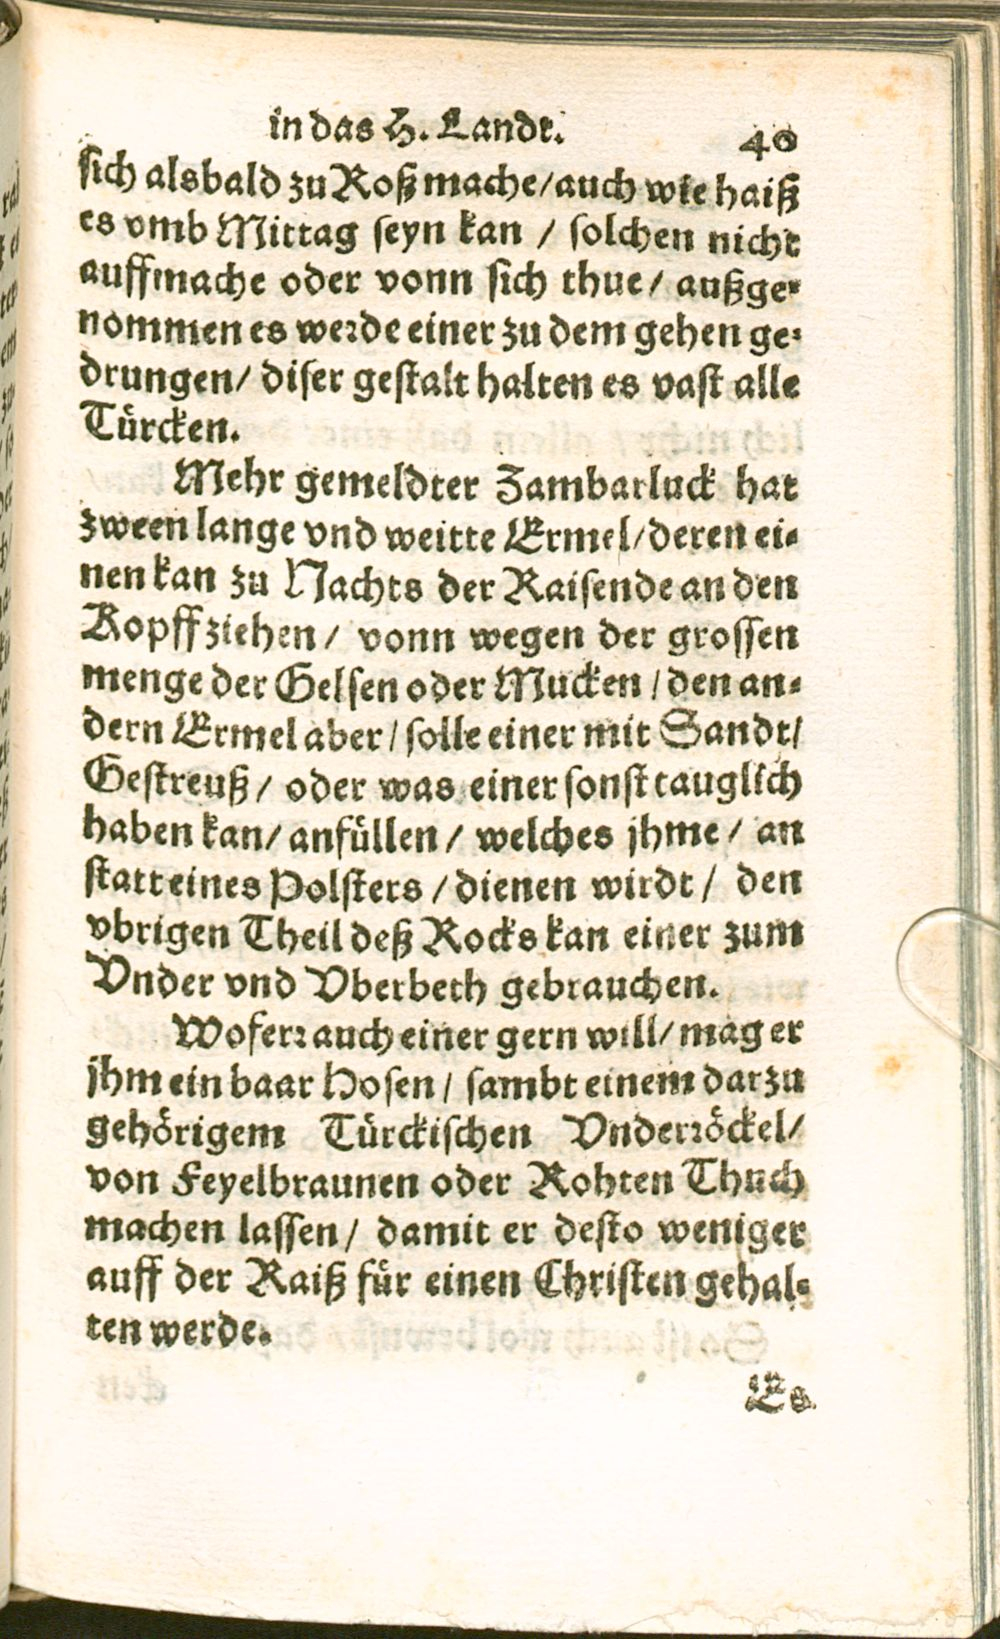 in das H. Landt.
40
sich alsbald zu Roß mache/auch wie haiß
es vmb Mittag seyn kan / solchen nicht
auffmache oder vonn sich thue/ außge-
nommen es werde einer zu dem gehen ge-
drungen/ diser gestalt halten es vast alle
Türcken.
Mehr gemeldter Zambarluck hat
zween lange vnd weitte Ermel/deren ei-
nen kan zu Nachts der Raisende an den
Kopff ziehen/ vonn wegen der grossen
menge der Gelsen oder Mucken / den an-
dern Ermel aber/ solle einer mit Sandt/
Gestreuß/ oder was einer sonst tauglich
haben kan/ anfüllen/ welches jhme/ an
statt eines Polsters / dienen wirdt/ den
vbrigen Theil deß Rocks kan einer zum
Vnder vnd Vberbeth gebrauchen.
Woferr auch einer gern will/ mag er
jhm ein baar Hosen/ sambt einem darzu
gehörigem Türckischen Vnderröckel/
von Feyelbraunen oder Rohten Thuch
machen lassen/ damit er desto weniger
auff der Raiß für einen Christen gehal-
ten werde.
Es